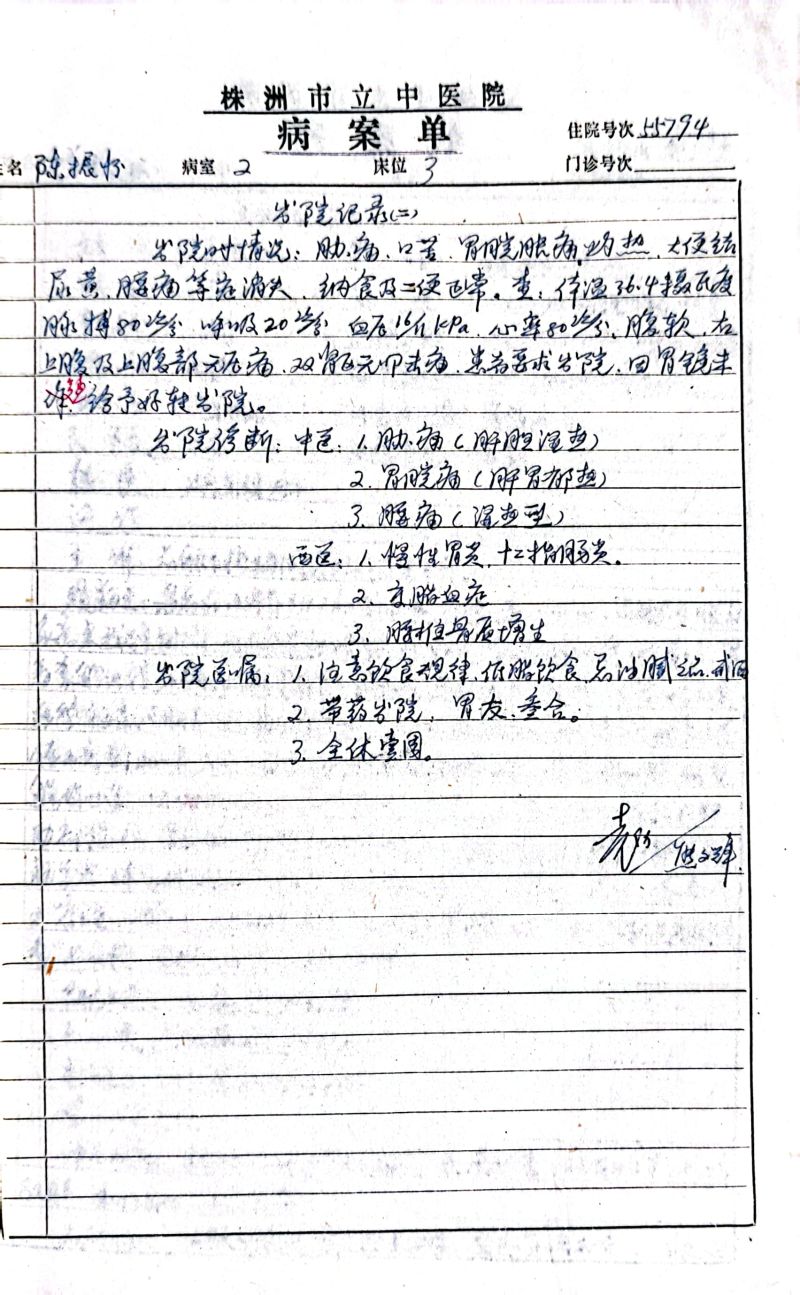 株洲市立中医院
病案单
住院号次 55794
名 陈振怀 病室 2 床位 3 门诊号次
出院记录(二)
出院时情况：胁痛、口苦、胃脘胀痛、灼热、大便结
尿黄、腰痛等症消失，纳食及二便正常。查：体温36.4摄氏度
脉搏80次/分 呼吸20次/分 血压15/ kPa，心率80次/分，腹软，右
上腹及上腹部无压痛，双肾区无叩击痛，患者要求出院，因胃镜未
准 给予好转出院。
出院诊断：中医：1. 胁痛（肝胆湿热）
2. 胃脘痛（肝胃郁热）
3. 腰痛（湿热型）
西医：1. 慢性胃炎，十二指肠炎。
2. 高脂血症
3. 腰椎骨质增生
出院医嘱：1. 注意饮食规律，低脂饮食，忌油腻之品，戒酒
2. 带药出院，胃友、
3. 全休壹周。